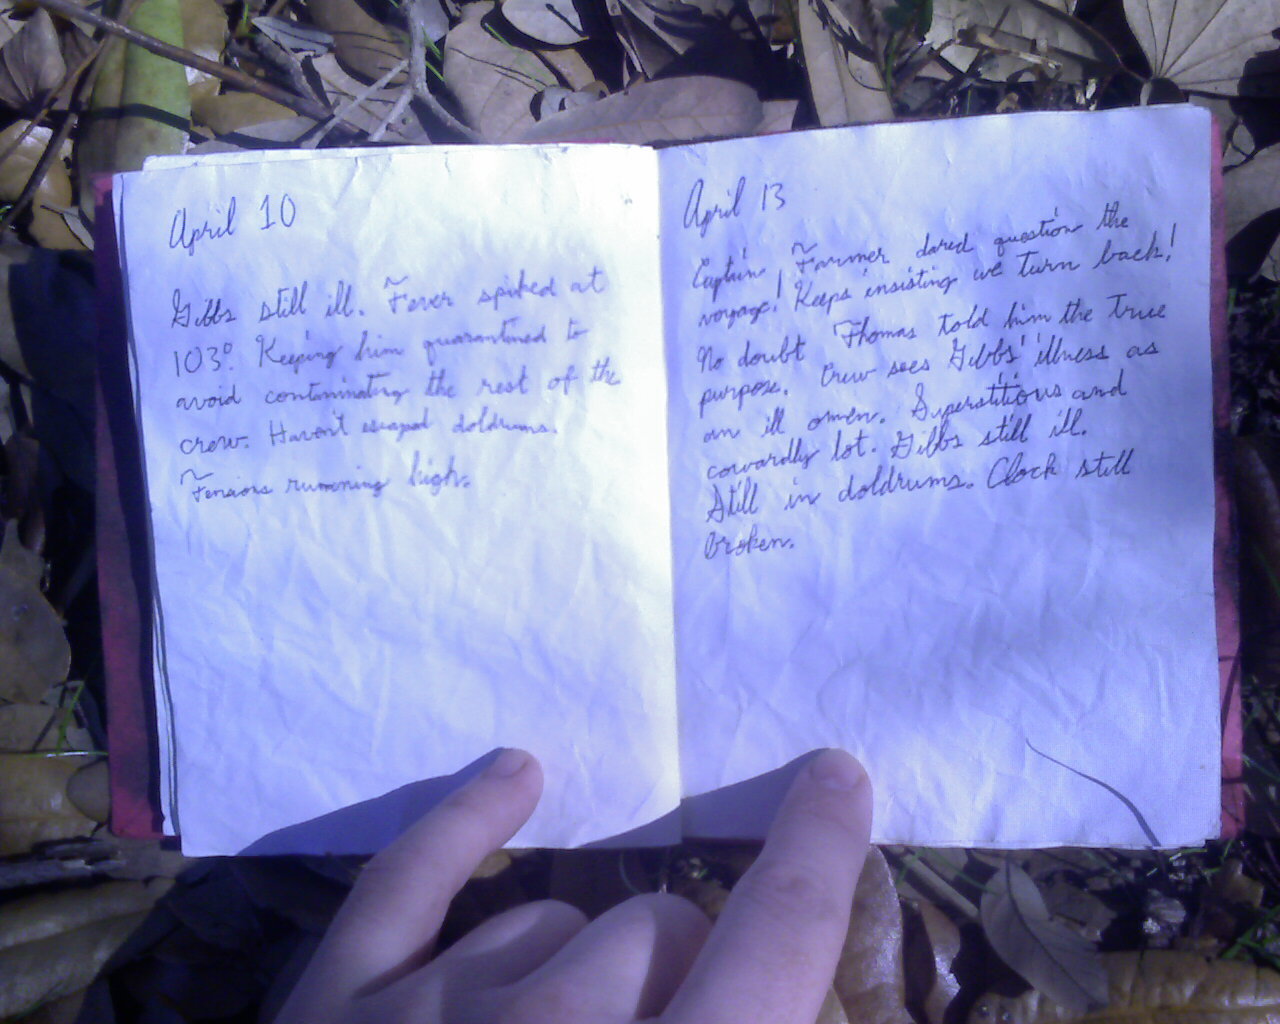 April 10
Gibbs still ill. Fever spiked at
103° Keeping him quarantined to
avoid contaminating the rest of the
crew. Haven't escaped doldrums.
Tensions running high.
April 13
Captain Farmer dared question the
voyage! Keeps insisting we turn back!
No doubt Thomas told him the true
purpose. Crew sees Gibbs' illness as
an ill omen. Superstitious and
cowardly lot. Gibbs still ill.
Still in doldrums. Clock still
broken.